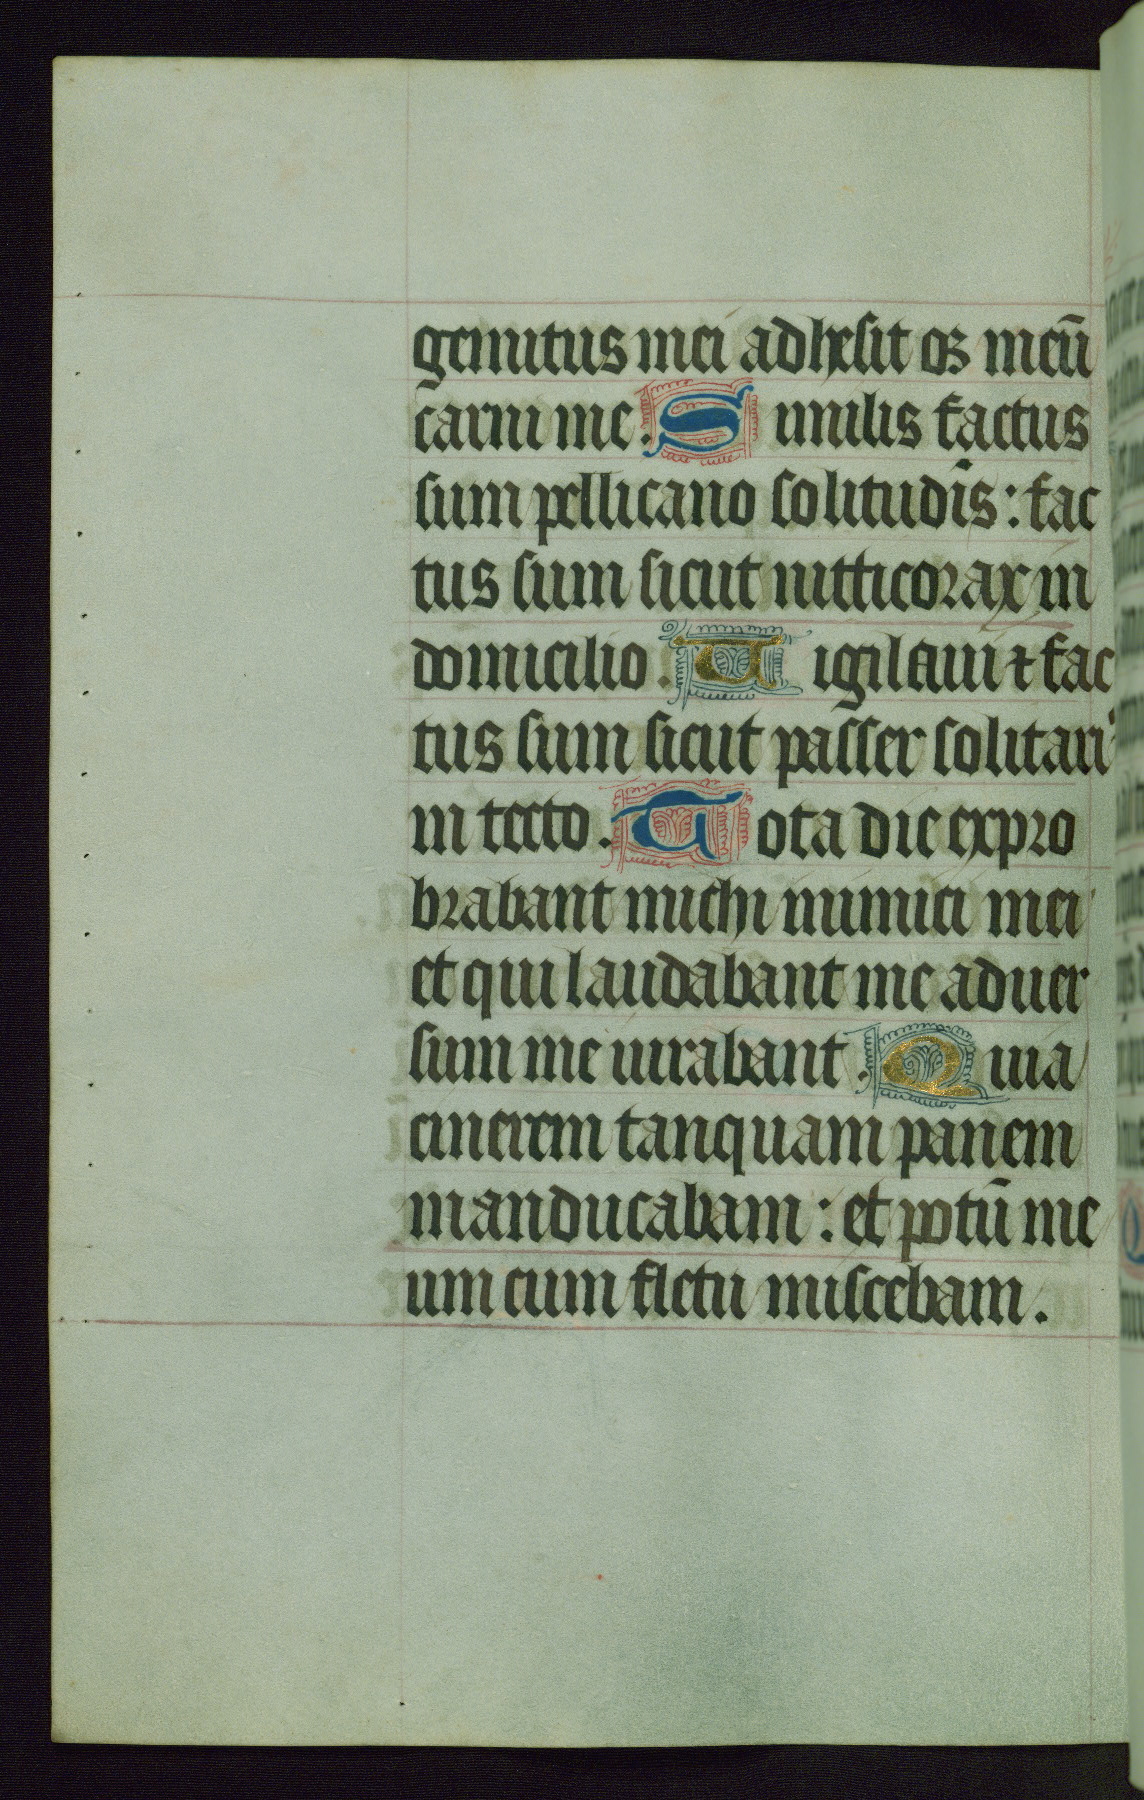 gemitus mei adhesit os meū
carni me. Similis factus
sum pellicano solitudīs: fac
tus sum sicut nitticorax in
domicilio. Uigilaui ⁊ fac
tus sum sicut passer solitari⁹
in tecto. Tota die expro
brabant michi inimici mei
et qui laudabant me aduer
sum me iurabant. Quia
cinerem tanquam panem
manducabam: et potū me
um cum fletu miscebam.